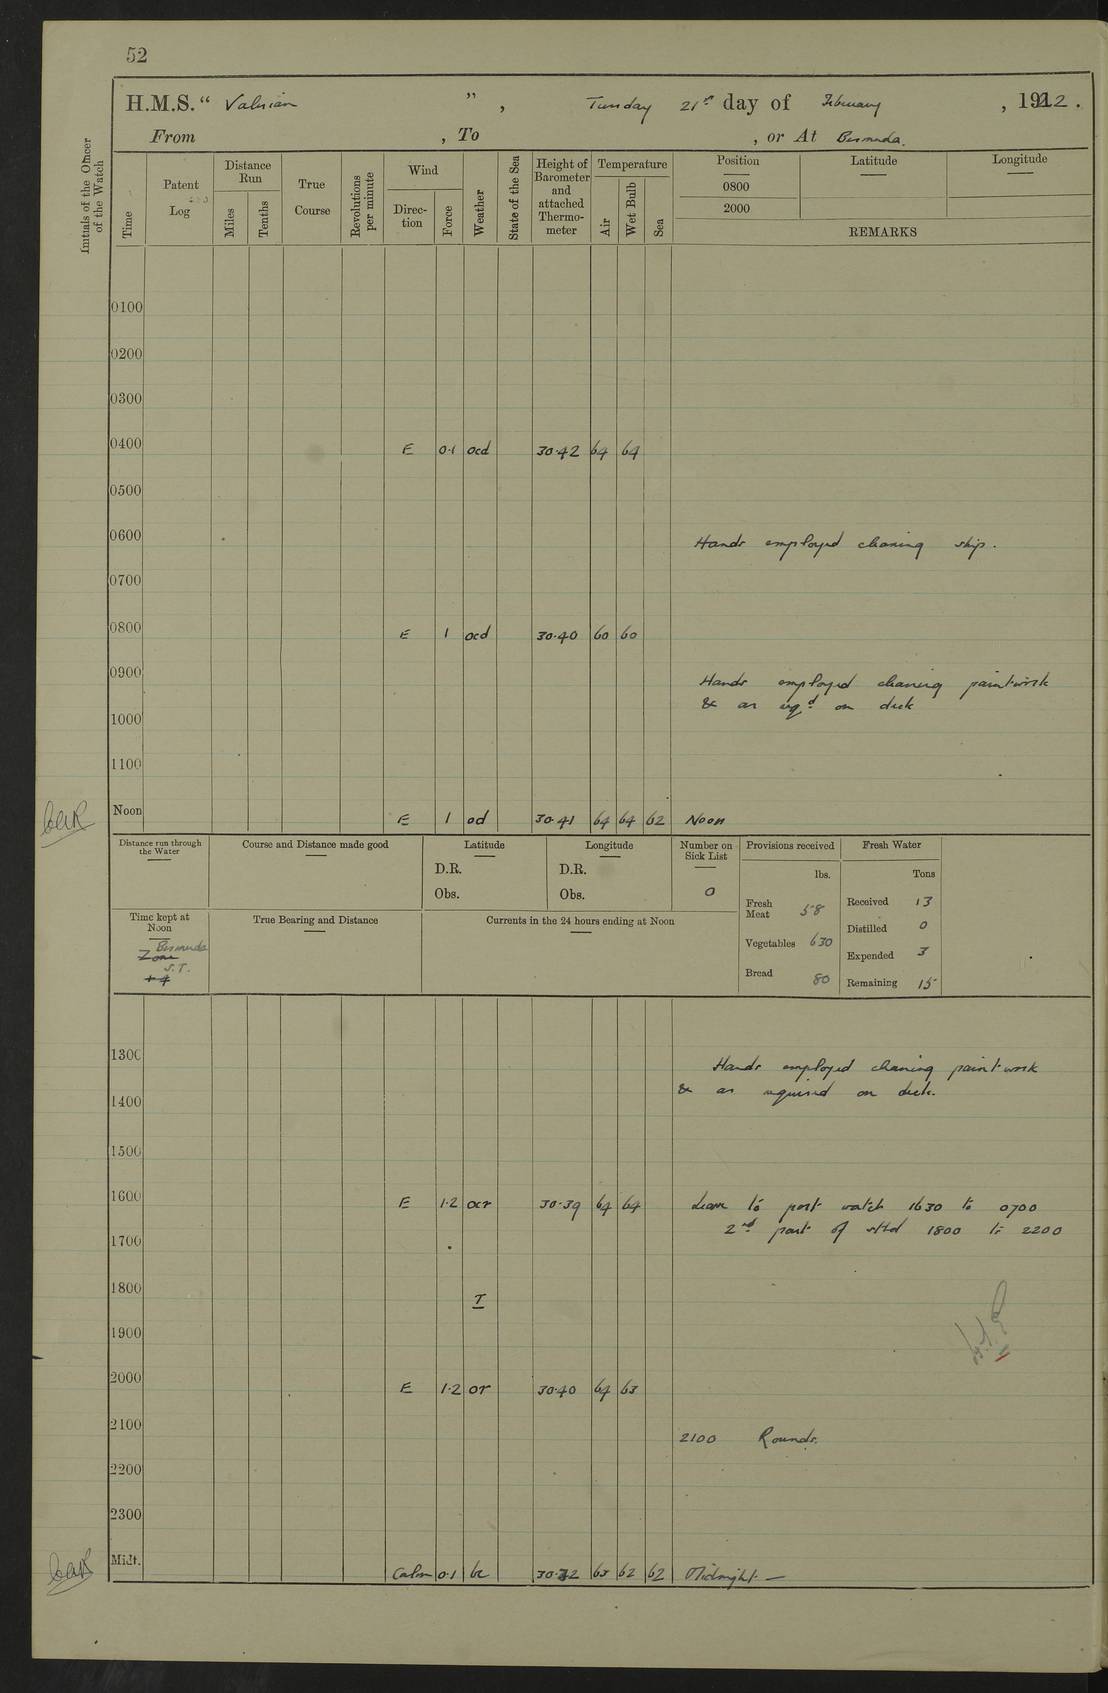 52
H.M.S. “ Valerian ” , Tuesday 21st day of February , 1922 .
From , To , or At Bermuda.
Initials of the Officer of the Watch
Time
Patent Log
Distance Run
Miles
Tenths
True Course
Revolutions per minute
Wind
Direc-tion
Force
Weather
State of the Sea
Height of Barometer and attached Thermo-meter
Temperature
Air
Wet Bulb
Sea
Position
0800
2000
Latitude
Longitude
REMARKS
0100
0200
0300
0400 E 0·1 ocd 30·42 64 64
0500
0600 Hands employed cleaning ship.
0700
0800 E 1 ocd 30·40 60 60
0900 Hands employed cleaning paintwork
& as reqd on deck
1000
1100
Noon E 1 od 30·41 64 64 62 Noon
Distance run through the Water
Course and Distance made good
Latitude
D.R.
Obs.
Longitude
D.R.
Obs.
Number on Sick List
0
Provisions received
lbs.
Fresh Meat 58
Vegetables 630
Bread 80
Fresh Water
Tons
Received 13
Distilled 0
Expended 3
Remaining 15
Time kept at Noon
Bermuda
Zone
S.T.
+4
True Bearing and Distance
Currents in the 24 hours ending at Noon
1300 Hands employed cleaning paintwork
& as required on deck.
1400
1500
1600 E 1·2 ocr 30·39 64 64 Leave to port watch 1630 to 0700
2nd part of stbd 1800 to 2200
1700
1800 T
1900
2000 E 1·2 or 30·40 64 63
2100 2100 Rounds.
2200
2300
Midt. Calm 0·1 bc 63 62 62 Midnight —